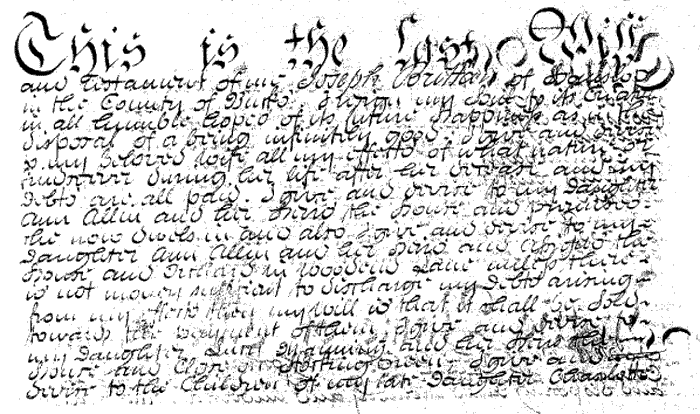 This is the last Will
and Testament of me Joseph Brittan of
in the County of Bucks. I resign my Soul to its Creator
in all humble hopes of its future happiness as in the
disposal of a being infinitely good I give and devise
to my beloved wife all my effects of what nature or
kind ever during her life after her decease and my
debts are all paid. I give and devise to my Daughter
Ann Allen and her Heirs the House and premises
she now dwels in and also I give and devise to my
Daughter Ann Allen and her Heirs and the
House and Orchard in Woodend Lane unless there
is not money sufficient to discharge my debts arising
from my effects then my will is that it shall be Sold
towards the payment of them I give and devise to
my Daughter Manning and her Heirs the
House and Close on Green I give and
devise to the Children of my late Daughter Charlotte